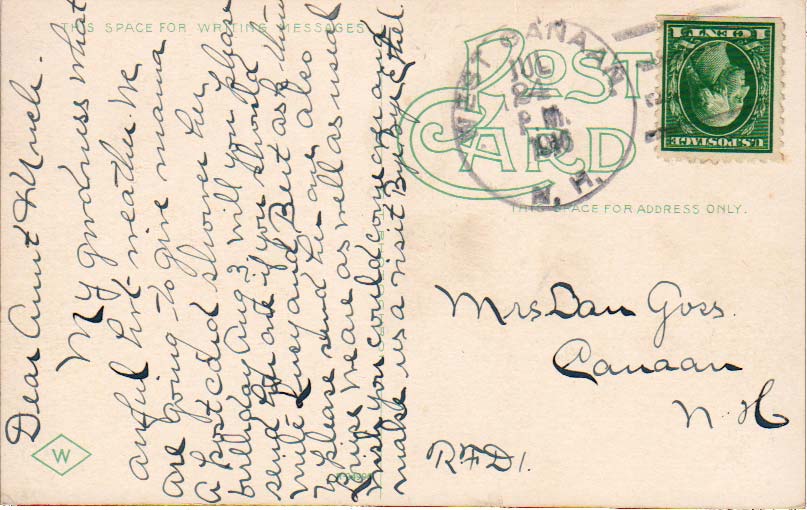 THIS SPACE FOR WRITING MESSAGES
Dear Aunt & Uncle.
My goodness what
awful hot weather. We
are going to give mama
a post card shower her
birthday Aug 3 will you please
send her one if you should
write Lucy and Bert ask them
to please send her one also
we are as well as usual
wish you could come up and
make us a visit By by Ethel.
W
POST
CARD
THIS SPACE FOR ADDRESS ONLY.
WEST CANAAN,
JUL
24
P.M.
1916
N. H.
1 CENT 1
U.S. POSTAGE
Mrs Dan Goss.
Canaan
N H
RFD1.